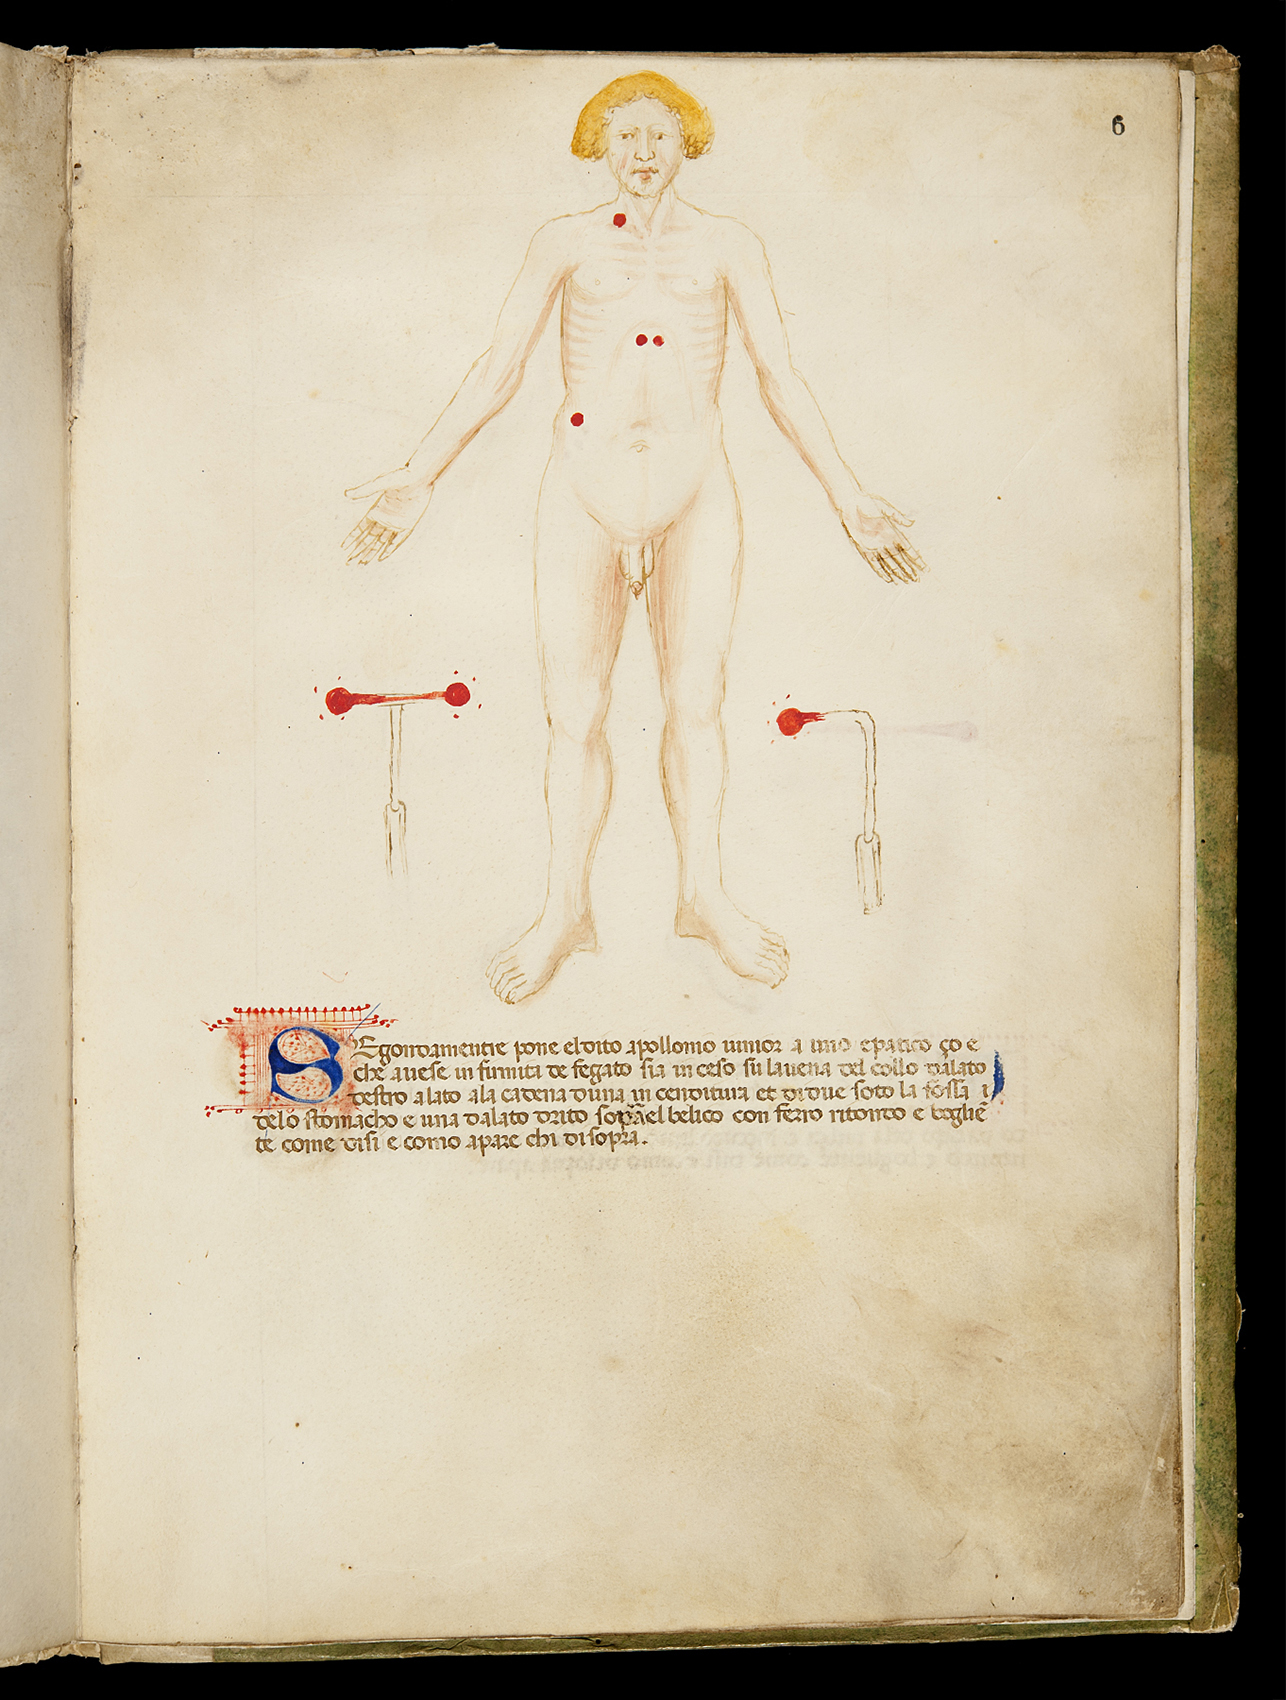 6
SEgondamente pone eldito apollonio uunior a uno epatico ço e
che auese in firmita de fegato sia in ceso su la uena del collo dalato
destro alato ala cadena duna in cenditura et di due soto la fossa i
delo stomacho e una dalato drito sopra el belico con ferro ritondo e boglie
te come disi e como apare chi di sopra.